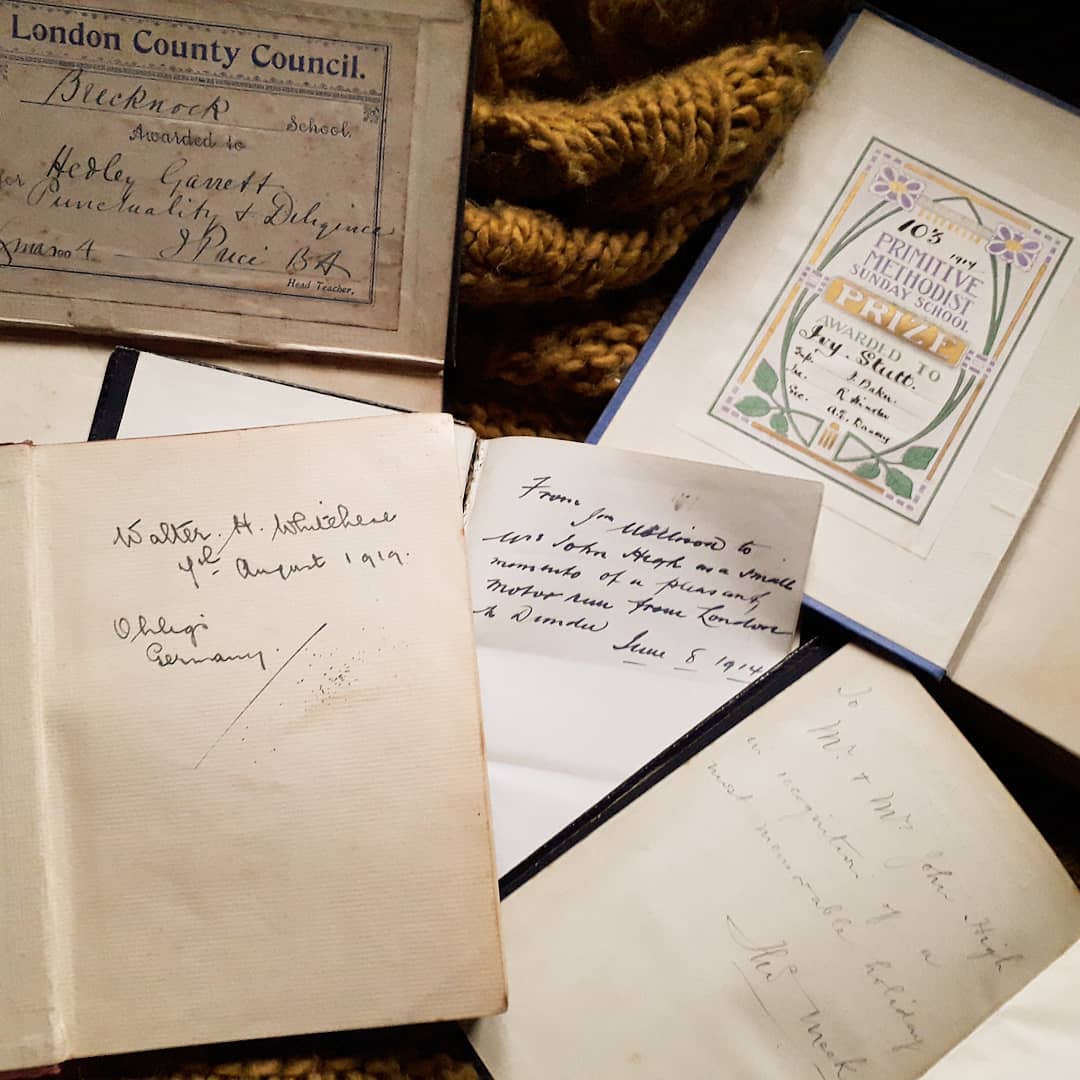 London County Council.
Brecknock School.
Awarded to
Hedley Garrett
for Punctuality & Diligence
Xmas 1904 J Price BA
Head Teacher.
1914
PRIMITIVE
METHODIST
SUNDAY SCHOOL
PRIZE
AWARDED TO
Ivy Stutt.
Sup. J. Baker.
Tre. R Hinder
Sec. A.E.
Walter. H.
4th August 1919.
Ohligs
Germany.
From
Jas Mollison to
Mrs John High as a small
momento of a pleasant
motor run from London
to Dundee
June 8 1914
To
Mr & Mrs John High
in recognition of a
most memorable holiday
Meek